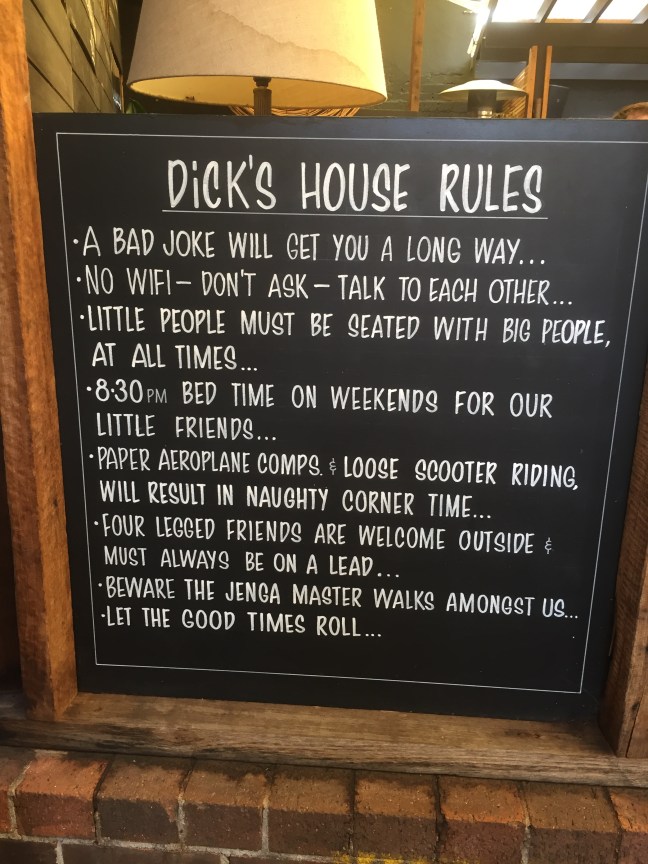 DiCK'S HOUSE RULES
·A BAD JOKE WILL GET YOU A LONG WAY...
·NO WIFI – DON'T ASK – TALK TO EACH OTHER...
·LITTLE PEOPLE MUST BE SEATED WITH BIG PEOPLE,
AT ALL TIMES...
·8·30 PM BED TIME ON WEEKENDS FOR OUR
LITTLE FRIENDS...
·PAPER AEROPLANE COMPS. & LOOSE SCOOTER RIDING,
WILL RESULT IN NAUGHTY CORNER TIME...
·FOUR LEGGED FRIENDS ARE WELCOME OUTSIDE &
MUST ALWAYS BE ON A LEAD...
·BEWARE THE JENGA MASTER WALKS AMONGST US...
·LET THE GOOD TIMES ROLL...